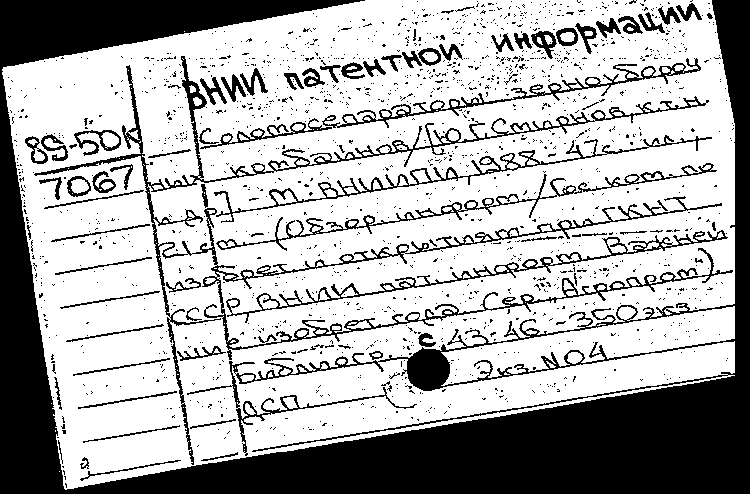 ВНИИ патентной информации.
89-50К
7067
Соломосепараторы зерноубороч
ных комбайнов/[Ю.Г.Смирнов, к.т.н.
и др.]. - М.: ВНИИПИ, 1988. - 47с.: ил.;
21 см. - (Обзор. информ. / Гос. ком. по
изобрет. и открытиям при ГКНТ
СССР, ВНИИ пат. информ. Важней-
шие изобрет. года. Сер. "Агропром").
Библиогр.: с. 43-46. - 350 экз.
ДСП. Экз. N04